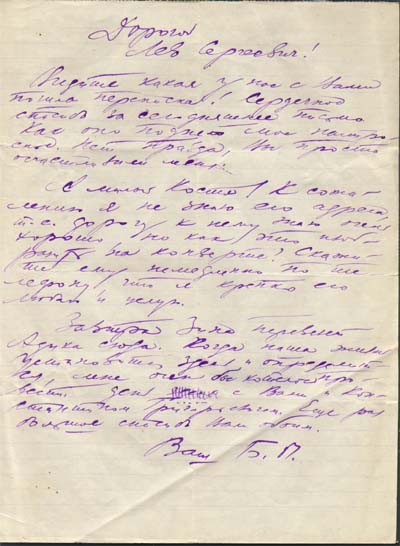 Дорогой
Лев Сергеевич!
Видите какая у нас с Вами
пошла переписка! Сердечное
спасибо за сегодняшнее письмо
Как оно подняло мое настро-
ение. Нет правда, Вы просто
осчастливили меня.
А милый Костя! К сожа-
лению я не знаю его адреса
т. е. дорогу к нему знаю очень
хорошо но как это
на конверте? Скажи-
те ему немедленно по те-
лефону что я крепко его
люблю и целую.
Завтра Зина перевезет
Адика сюда. Когда наша жизнь
установится здесь и определит-
ся, мне очень бы хотелось про-
вести день с Вами и Кон-
стантином Еще раз
большое спасибо Вам обоим.
Ваш Б. П.